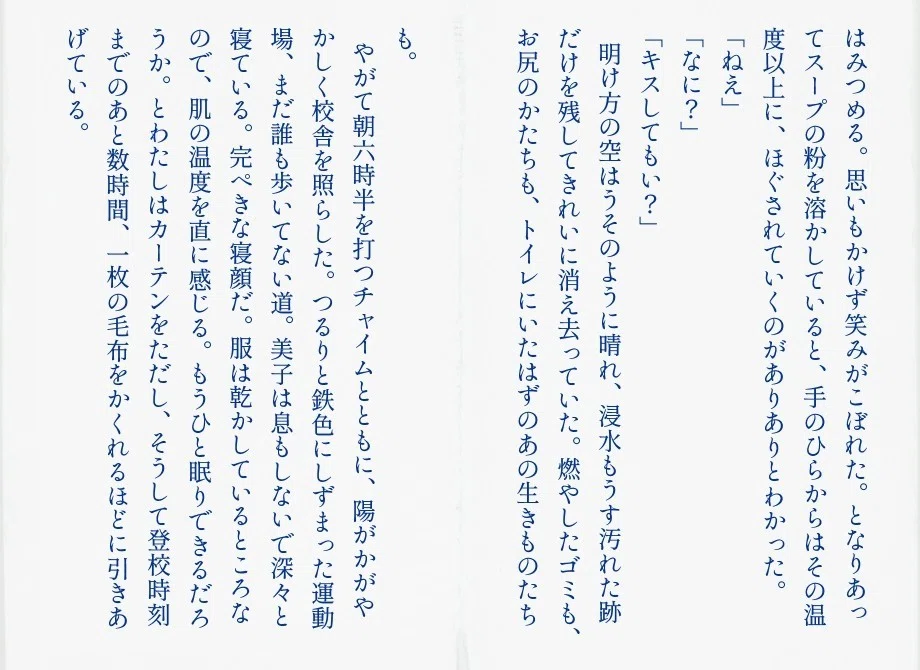 はみつめる。思いもかけず笑みがこぼれた。となりあっ
てスープの粉を溶かしていると、手のひらからはその温
度以上に、ほぐされていくのがありありとわかった。
「ねえ」
「なに？」
「キスしてもい？」
明け方の空はうそのように晴れ、浸水もうす汚れた跡
だけを残してきれいに消え去っていた。燃やしたゴミも、
お尻のかたちも、トイレにいたはずのあの生きものたち
も。
やがて朝六時半を打つチャイムとともに、陽がかがや
かしく校舎を照らした。つるりと鉄色にしずまった運動
場、まだ誰も歩いてない道。美子は息もしないで深々と
寝ている。完ぺきな寝顔だ。服は乾かしているところな
ので、肌の温度を直に感じる。もうひと眠りできるだろ
うか。とわたしはカーテンをただし、そうして登校時刻
までのあと数時間、一枚の毛布をかくれるほどに引きあ
げている。